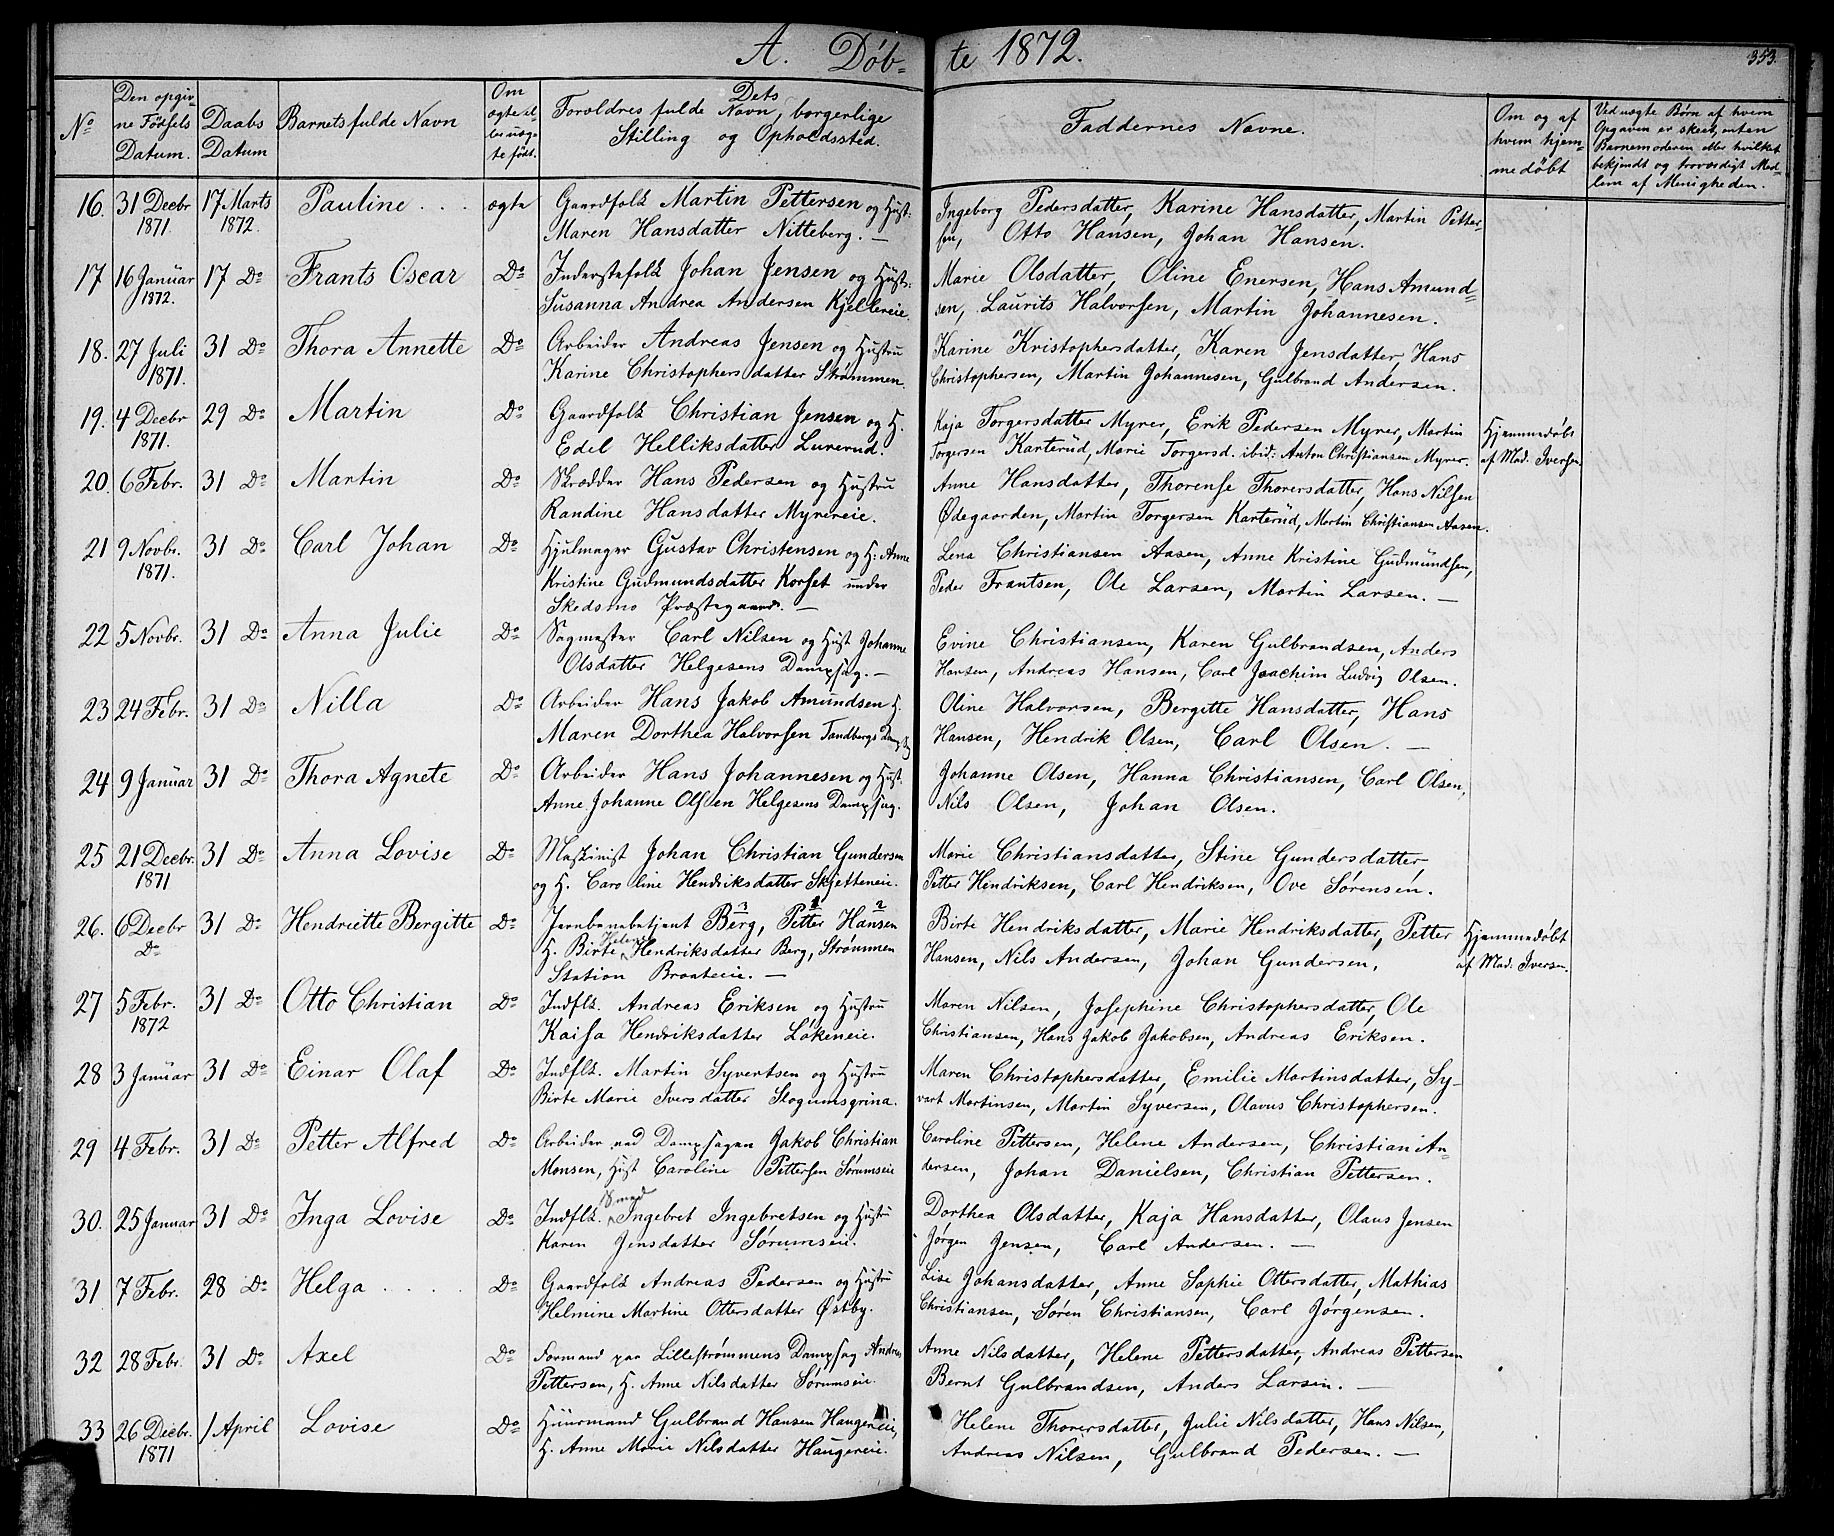 A. Døbte 1872.
353
No
Den opgivne Fødsels Datum.
Daabs Datum
Barnets fulde Navn
Om ægte el. ber uægte født.
Forældres fulde Navn, borgerlige Dets
Stilling og Opholdssted.
Faddernes Navne.
Om og af hvem hjemmedøbt
Ved uægte Børn af hvem Opgaven er skeet, enten Barnemoderen eller hvilket bekjendt og troværdigt Medlem af Menigheden.
16. 31 Decbr 17 Marts Pauline . . . ægte Gaardfolk Martin Pettersen og Hust. Ingeborg Pedersdatter, Karine Hansdatter, Martin Petter-
1871. 1872. Maren Hansdatter Nitteberg. — sen, Otto Hansen, Johan Hansen.
17 16 Januar 17 Do Frants Oscar Do Inderstefolk Johan Jensen og Hust: Marie Olsdatter, Oline Enersen, Hans Amund-
1872. Susanna Andrea Andersen Kjellereie. sen, Laurits Halvorsen, Martin Johannesen.
18. 27 Juli 31 Do Thora Annette Do Arbeider Andreas Jensen og Hustru Karine Kristophersdatter, Karen Jensdatter, Hans
1871. Karine Christophersdatter Strømmen. Christophersen, Martin Johannesen, Gulbrand Andersen.
19. 4 Decbr 29 Do Martin Do Gaardfolk Christian Jensen og H. Kaja Torgersdatter Myrer, Erik Pedersen Myrer, Martin Hjemmedøbt
1871. Edel Helliksdatter Lurerud. Torgersen Karterud, Marie Torgersd. ibid: Anton Christiansen Myrer. af Mad. Iversen
20. 6 Febr. 31 Do Martin Do Skrædder Hans Pedersen og Hustru Anne Hansdatter, Thorense Thorersdatter, Hans Nilsen
Randine Hansdatter Myrereie. Ødegaarden, Martin Torgersen Karterud, Martin Christiansen Aasen.
21 9 Novbr. 31 Do Carl Johan Do Hjulmager Gustav Christensen og H: Anne Lena Christiansen Aasen, Anne Kristine Gudmundsen,
1871. Kristine Gudmundsdatter Korset under Peder Frantsen, Ole Larsen, Martin Larsen. —
Skedsmo Præstegaard. —
22 5 Novbr. 31 Do Anna Julie Do Sagmester Carl Nilsen og Hust Johanne Evine Christiansen, Karen Gulbrandsen, Anders
Olsdatter Helgesens Dampsag. — Hansen, Andreas Hansen, Carl Joachim Ludvig Olsen.
23 24 Febr. 31 Do Nilla Do Arbeider Hans Jakob Amundsen H. Oline Halvorsen, Bergitte Hansdatter, Hans
Maren Dorthea Halvorsen Tandbergs Dampsag Hansen, Hendrik Olsen, Carl Olsen. —
24 9 Januar 31 Do Thora Agnete Do Arbeider Hans Johannesen og Hust. Johanne Olsen, Hanna Christiansen, Carl Olsen,
Anne Johanne Olsen Helgesens Dampsag. Nils Olsen, Johan Olsen.
25 21 Decbr. 31 Do Anna Lovise Do Maskinist Johan Christian Gundersen Marie Christiansdatter, Stine Gundersdatter,
1871 og H. Caroline Hendriksdatter Skjetteneie. Petter Hendriksen, Carl Hendriksen, Ove Sørensen.
26. 6 Decbr 31 Do Hendriette Bergitte Do Jernbanebetjent Berg, Petter Hansen Birte Hendriksdatter, Marie Hendriksdatter, Petter Hjemmedøbt
Do H. Birte Helene Hendriksdatter Berg, Strømmen Hansen, Nils Andersen, Johan Gundersen, af Mad. Iversen.
Station Braateeie. —
27 5 Febr. 31 Do Otto Christian Do Indflk. Andreas Eriksen og Hustru Maren Nilsen, Josephine Christophersdatter, Ole
1872 Kaisa Hendriksdatter Løkeneie. Christiansen, Hans Jakob Jakobsen, Andreas Eriksen.
28 3 Januar 31 Do Einar Olaf Do Indflk. Martin Syvertsen og Hustru Maren Christophersdatter, Emilie Martinsdatter, Sy-
Birte Marie Iversdatter Stogumsgrina. vart Martinsen, Martin Syversen, Olavus Christophersen.
29 4 Febr. 31 Do Petter Alfred Do Arbeider ved Dampsagen Jakob Christian Caroline Pettersen, Helene Andersen, Christian An-
Monsen, Hust Caroline Pettersen Sørumseie dersen, Johan Danielsen, Christian Pettersen.
30. 25 Januar 31 Do Inga Lovise Do Indflk. Smed Ingebret Ingebretsen og Hustru Dorthea Olsdatter, Kaja Hansdatter, Olaus Jensen
Karen Jensdatter Sørumseie. Jørgen Jensen, Carl Andersen. —
31 7 Febr. 28 Do Helga . . . . Do Gaardfolk Andreas Pedersen og Hustru Lise Johansdatter, Anne Sophie Ottersdatter, Mathias
Helmine Martine Ottersdatter Østby. Christiansen, Søren Christiansen, Carl Jørgensen.
32 28 Febr. 31 Do Axel Do Formand paa Lillestrømmens Dampsag Andreas Anne Nilsdatter, Helene Pettersdatter, Andreas Pettersen
Pettersen, H. Anne Nilsdatter Sørumseie. Bernt Gulbrandsen, Anders Larsen. —
33 26 Decbr. 1 April Lovise Do Huusmand Gulbrand Hansen Haugereie, Helene Thorersdatter, Julie Nilsdatter, Hans Nilsen,
1871 H. Anne Marie Nilsdatter Haugereie. Andreas Nilsen, Gulbrand Pedersen. —